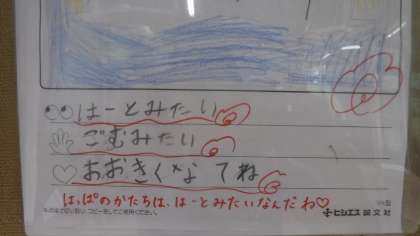 はーとみたい
ごむみたい
おおきくなてね
はっぱのかたちは、はーとみたいなんだね♡
ヒシエス 英文社